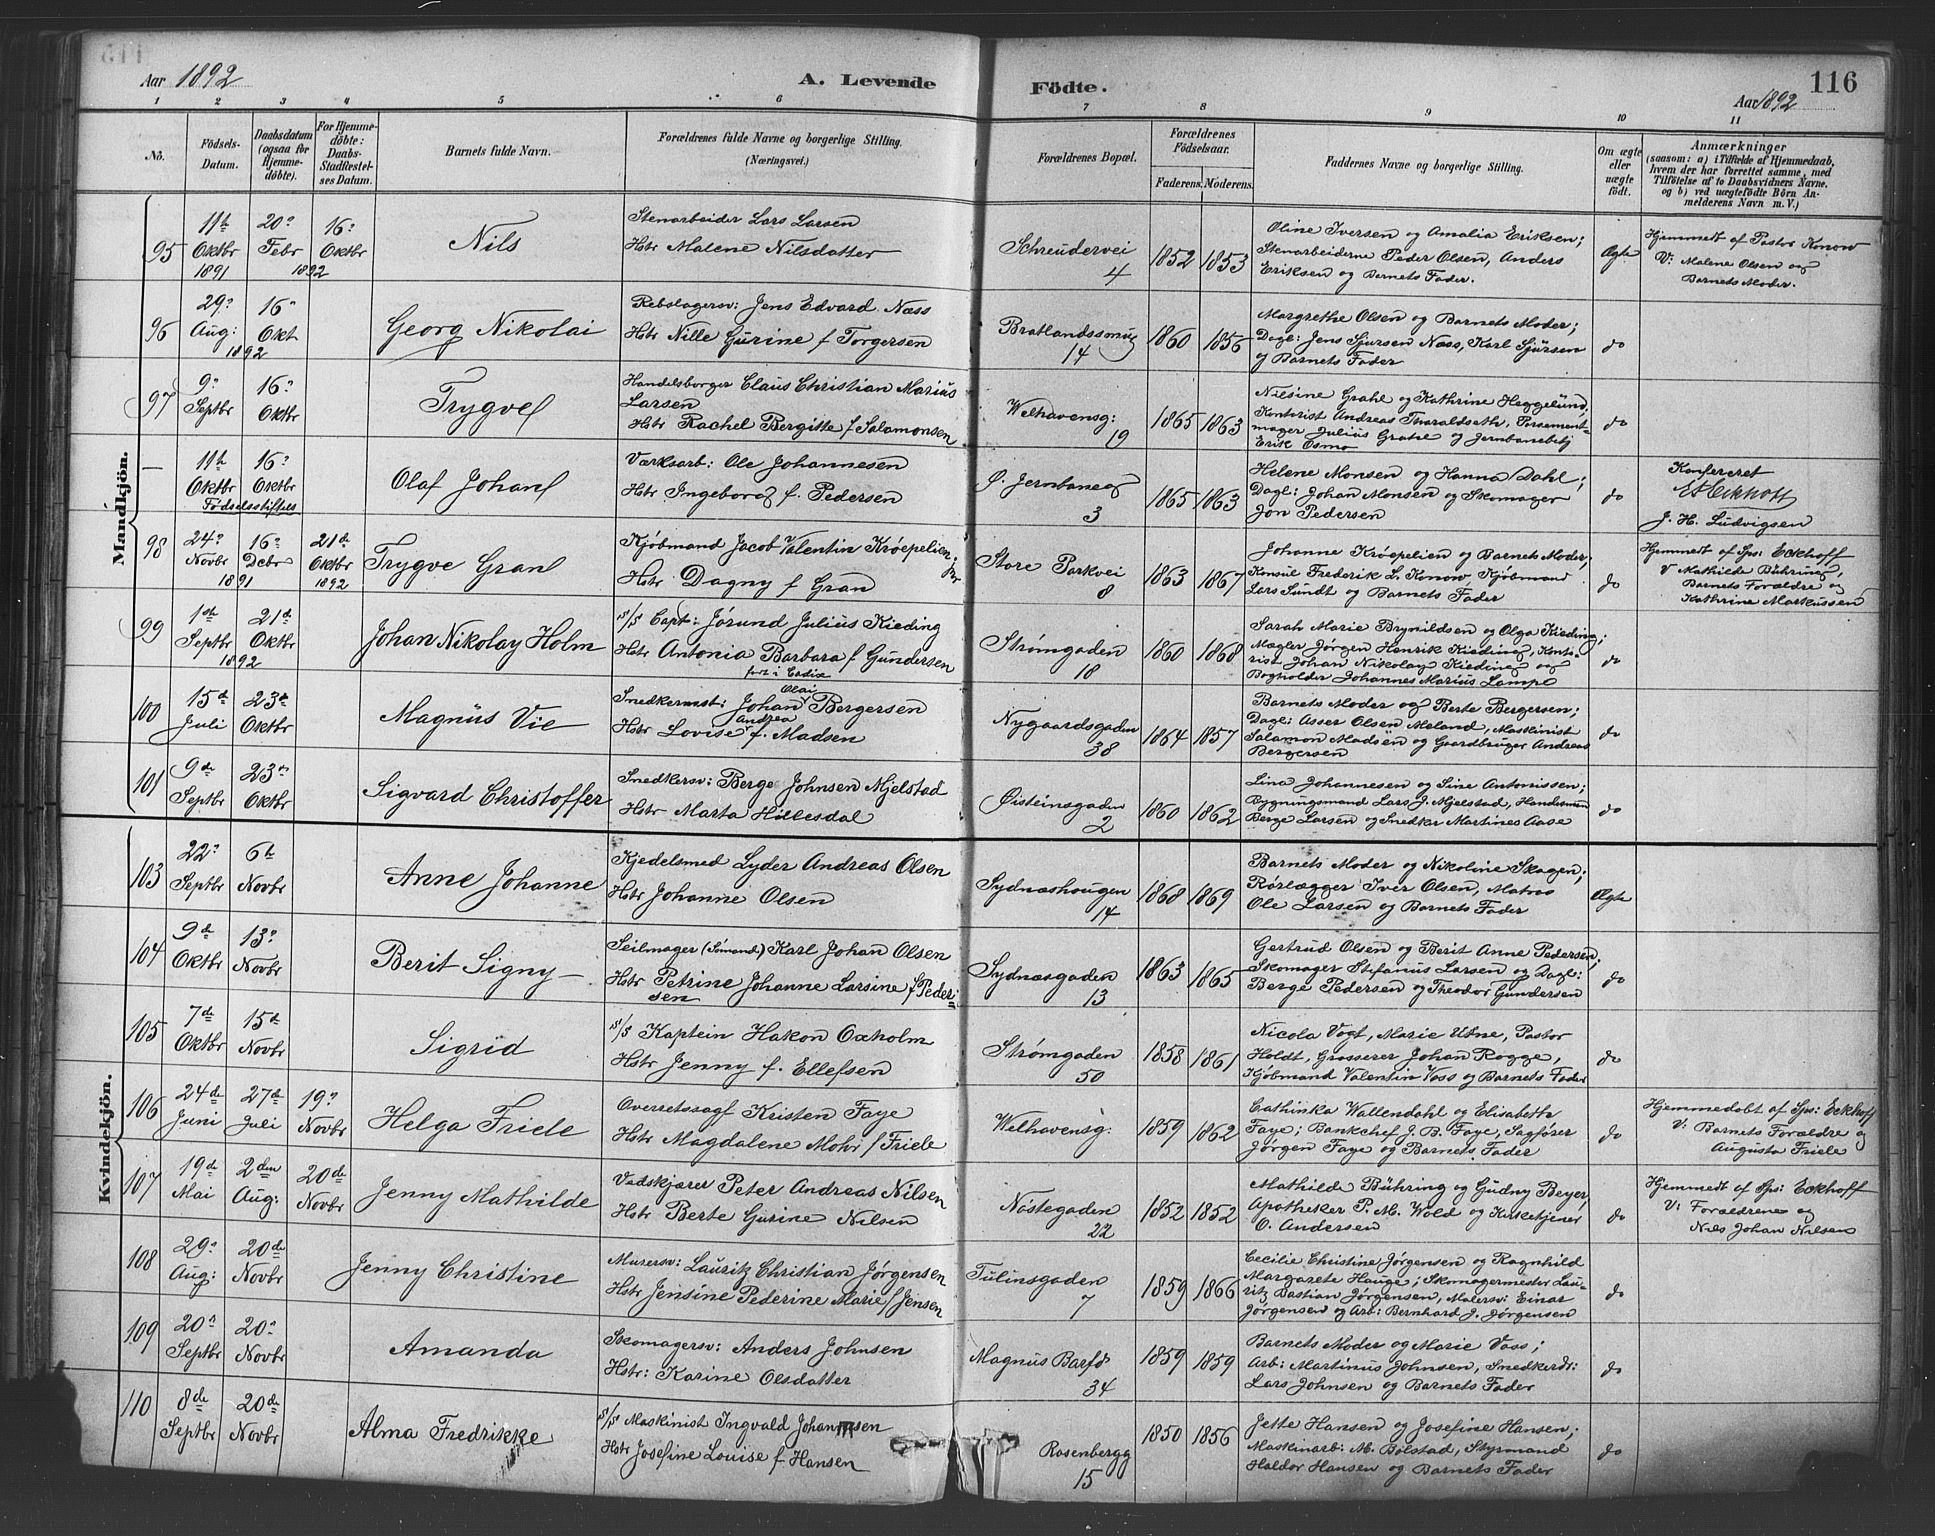 Aar 1892
A. Levende
Födte.
116
Aar 1892
1 2 3 4 5 6 7 8 9 10 11
No.
Födsels-Datum.
Daabsdatum (ogsaa for Hjemmedöbte).
For Hjemmedöbte: Daabs-Stadfæstelses Datum.
Barnets fulde Navn.
Forældrenes fulde Navne og borgerlige Stilling. (Næringsvei.)
Forældrenes Bopæl.
Forældrenes Födselsaar.
Faderens. Moderens.
Faddernes Navne og borgerlige Stilling.
Om ægte eller uægte födt.
Anmærkninger
(saasom: a) i Tilfælde af Hjemmedaab, hvem der har forrettet samme, med Tilföielse af to Daabsvidners Navne. og b) ved uægtefödte Börn Anmelderens Navn m. V.)
Mandkjön.
95
11te Oktbr 1891
20de Febr 1892
16de Oktbr
Nils
Stenarbeider Lars Larsen
Hstr Malene Nilsdatter
Schreudervei 4
1852 1853
Oline Iversen og Amalia Eriksen;
Stenarbeiderne Peder Olsen, Anders
Eriksen og Barnets Fader.
Ægte
Hjemmedt af Pastor Konow
V: Malene Olsen og
Barnets Moder.
96
29de Aug: 1892
16de Okt
Georg Nikolai
Rebslagersv: Jens Edvard Næss
Hstr Nille Gurine f Torgersen
Bratlandssmug 14
1860 1856
Margrethe Olsen og Barnets Moder;
Dagl: Jens Sjursen Næss, Karl Sjursen
og Barnets Fader
do
97
9de Septbr
16de Oktbr
Trygve
Handelsborger Claus Christian Marius
Larsen
Hstr Rachel Bergitte f Salamonsen
Welhavensg: 19
1865 1863
Nilsine Grahl og Kathrine Heggelund,
Kontorist Andreas Tharaldseth, Possement-
mager Julius Grahl og Jernbanebetj
Erik Osmo
do
—
11te Oktbr
16de Oktbr
Födselsstiftels
Olaf Johan
Værksarb: Ole Johannesen
Hstr Ingeborg f. Pedersen
Ø. Jernbaneg 3
1865 1863
Helene Monsen og Hanna Dahl;
Dagl: Johan Monsen og Skomager
Jon Pedersen
do
Konfereret
E Eckhoff
J. H. Ludvigsen
98
24de Novbr 1891
16de Dcbr
21de Oktbr 1892
Trygve Gran
Kjøbmand Jacob Valentin Krøepelien jr
Hstr: Dagny f Gran
Store Parkvei 8
1863 1867
Johanne Krøepelien og Barnets Moder;
Konsul Frederik L. Konow, Kjøbmand
Lars Sundt og Barnets Fader
do
Hjemmedt af Sps: Eckhoff
V Mathilde Bühring,
Barnets Forældre og
Kathrine Markussen
99
1ste Septbr 1892
21de Oktbr
Johan Nikolay Holm
s/s Capt: Jørund Julius Kieding
Hstr Antonia Barbara f Gundersen
født i Cadix
Strømgaden 18
1860 1868
Sarah Marie Brynildsen og Olga Kieding;
Mægler Jørgen Henrik Kieding, Konto-
rist Johan Nikolay Kieding og
Bogholder Johannes Marius Lampe
do
100
15de Juli
23de Oktbr
Magnus Vie
Snedkermst: Johan Olai Bergersen
Hstr: Lovise Andrea f. Madsen
Nygaardsgaden 38
1864 1857
Barnets Moder og Berte Bergersen;
Dagl: Asser Olsen Meland, Maskinist
Salamon Madsen og Gaardbruger Andreas
Bergersen
do
101
9de Septbr
23de Oktbr
Sigvard Christoffer
Snedkersv: Berge Johnsen Mjelstad
Hstr Marta Hillesdal
Øisteinsgaden 2
1860 1862
Lina Johannesen og Sine Antonissen;
Bygningsmand Lars J. Mjelstad, Handelsman
Berge Larsen og Snedker Martines Aase
do
Kvindekjön.
103
22de Septbr
6te Novbr
Anne Johanne
Kjedelsmed Lyder Andreas Olsen
Hstr Johanne Olsen
Sydnæshougen 14
1868 1869
Barnets Moder og Nikoline Skagen;
Rørlægger Iver Olsen, Matros
Ole Larsen og Barnets Fader
Ægte
104
9de Oktbr
13de Novbr
Berit Signy —
Seilmager (Sømand.) Karl Johan Olsen
Hstr Petrine Johanne Larsine f Peder=
sen
Sydnæsgaden 13
1863 1865
Gertrud Olsen og Berit Anne Pedersen;
Skomager Stefanus Larsen og Dagl:
Berge Pedersen og Theodor Gundersen
do
105
7de Oktbr
15de Novbr
Sigrid
s/s Kaptein Hakon Oxholm
Hstr Jenny f. Ellefsen
Strømgaden 50
1858 1861
Nicola Vogt, Marie Utne, Pastor
Holdt, Grosserer Johan Rogge,
Kjøbmand Valentin Voss og Barnets Fader
do
106
24de Juni
27de Juli
19de Novbr
Helga Friele
Overretssagf Kristen Faye
Hstr Magdalene Mohr f Friele
Welhavensg:
1859 1862
Cathinka Wallendahl og Elisabeth
Faye; Bankchef J. B. Faye, Sagfører
Jørgen Faye og Barnets Fader
do
Hjemmedøbt af Sps: Eckhoff
V: Barnets Forældre og
Augusta Friele
107
19de Mai
2den Aug:
20de Novbr
Jenny Mathilde
Vadskjærer Peter Andreas Nilsen
Hstr Berte Gurine Nilsen
Nøstegaden 22
1852 1852
Mathilde Bühring og Gudny Beyer,
Apotheker P. M. Wold og Kirketjener
O. Andersen
do
Hjemmedt af Sps: Eckhoff
V: Forældrene og
Nils Johan Nilsen
108
29de Aug:
20de Novbr
Jenny Christine
Murersv: Lauritz Christian Jørgensen
Hstr Jensine Pederine Marie f Jensen
Tulinsgaden 7
1859 1866
Cecilie Christine Jørgensen og Ragnhild
Margarete Hauge; Skomagermester Lau-
ritz Bastian Jørgensen, Malersv: Einar
Jørgensen og Arb: Bernhard J. Jørgensen
do
109
20de Septbr
20de Novbr
Amanda
Skomagersv: Anders Johnsen
Hstr: Karine Olsdatter
Magnus Barfd 34
1859 1859
Barnets Moder og Marie Vass;
Arb: Martinus Johnsen, Snedkerdr:
Lars Johnsen og Barnets Fader
do
110
8de Septbr
20de Novbr
Alma Fredrikke
s/s Maskinist Ingvald Johannesen
Hstr Josefine Louise f Hansen
Rosenbergg 15
1850 1856
Jette Hansen og Josefine Hansen;
Maskinarb: M. Bolstad, Styrmand
Haldor Hansen og Barnets Fader
do